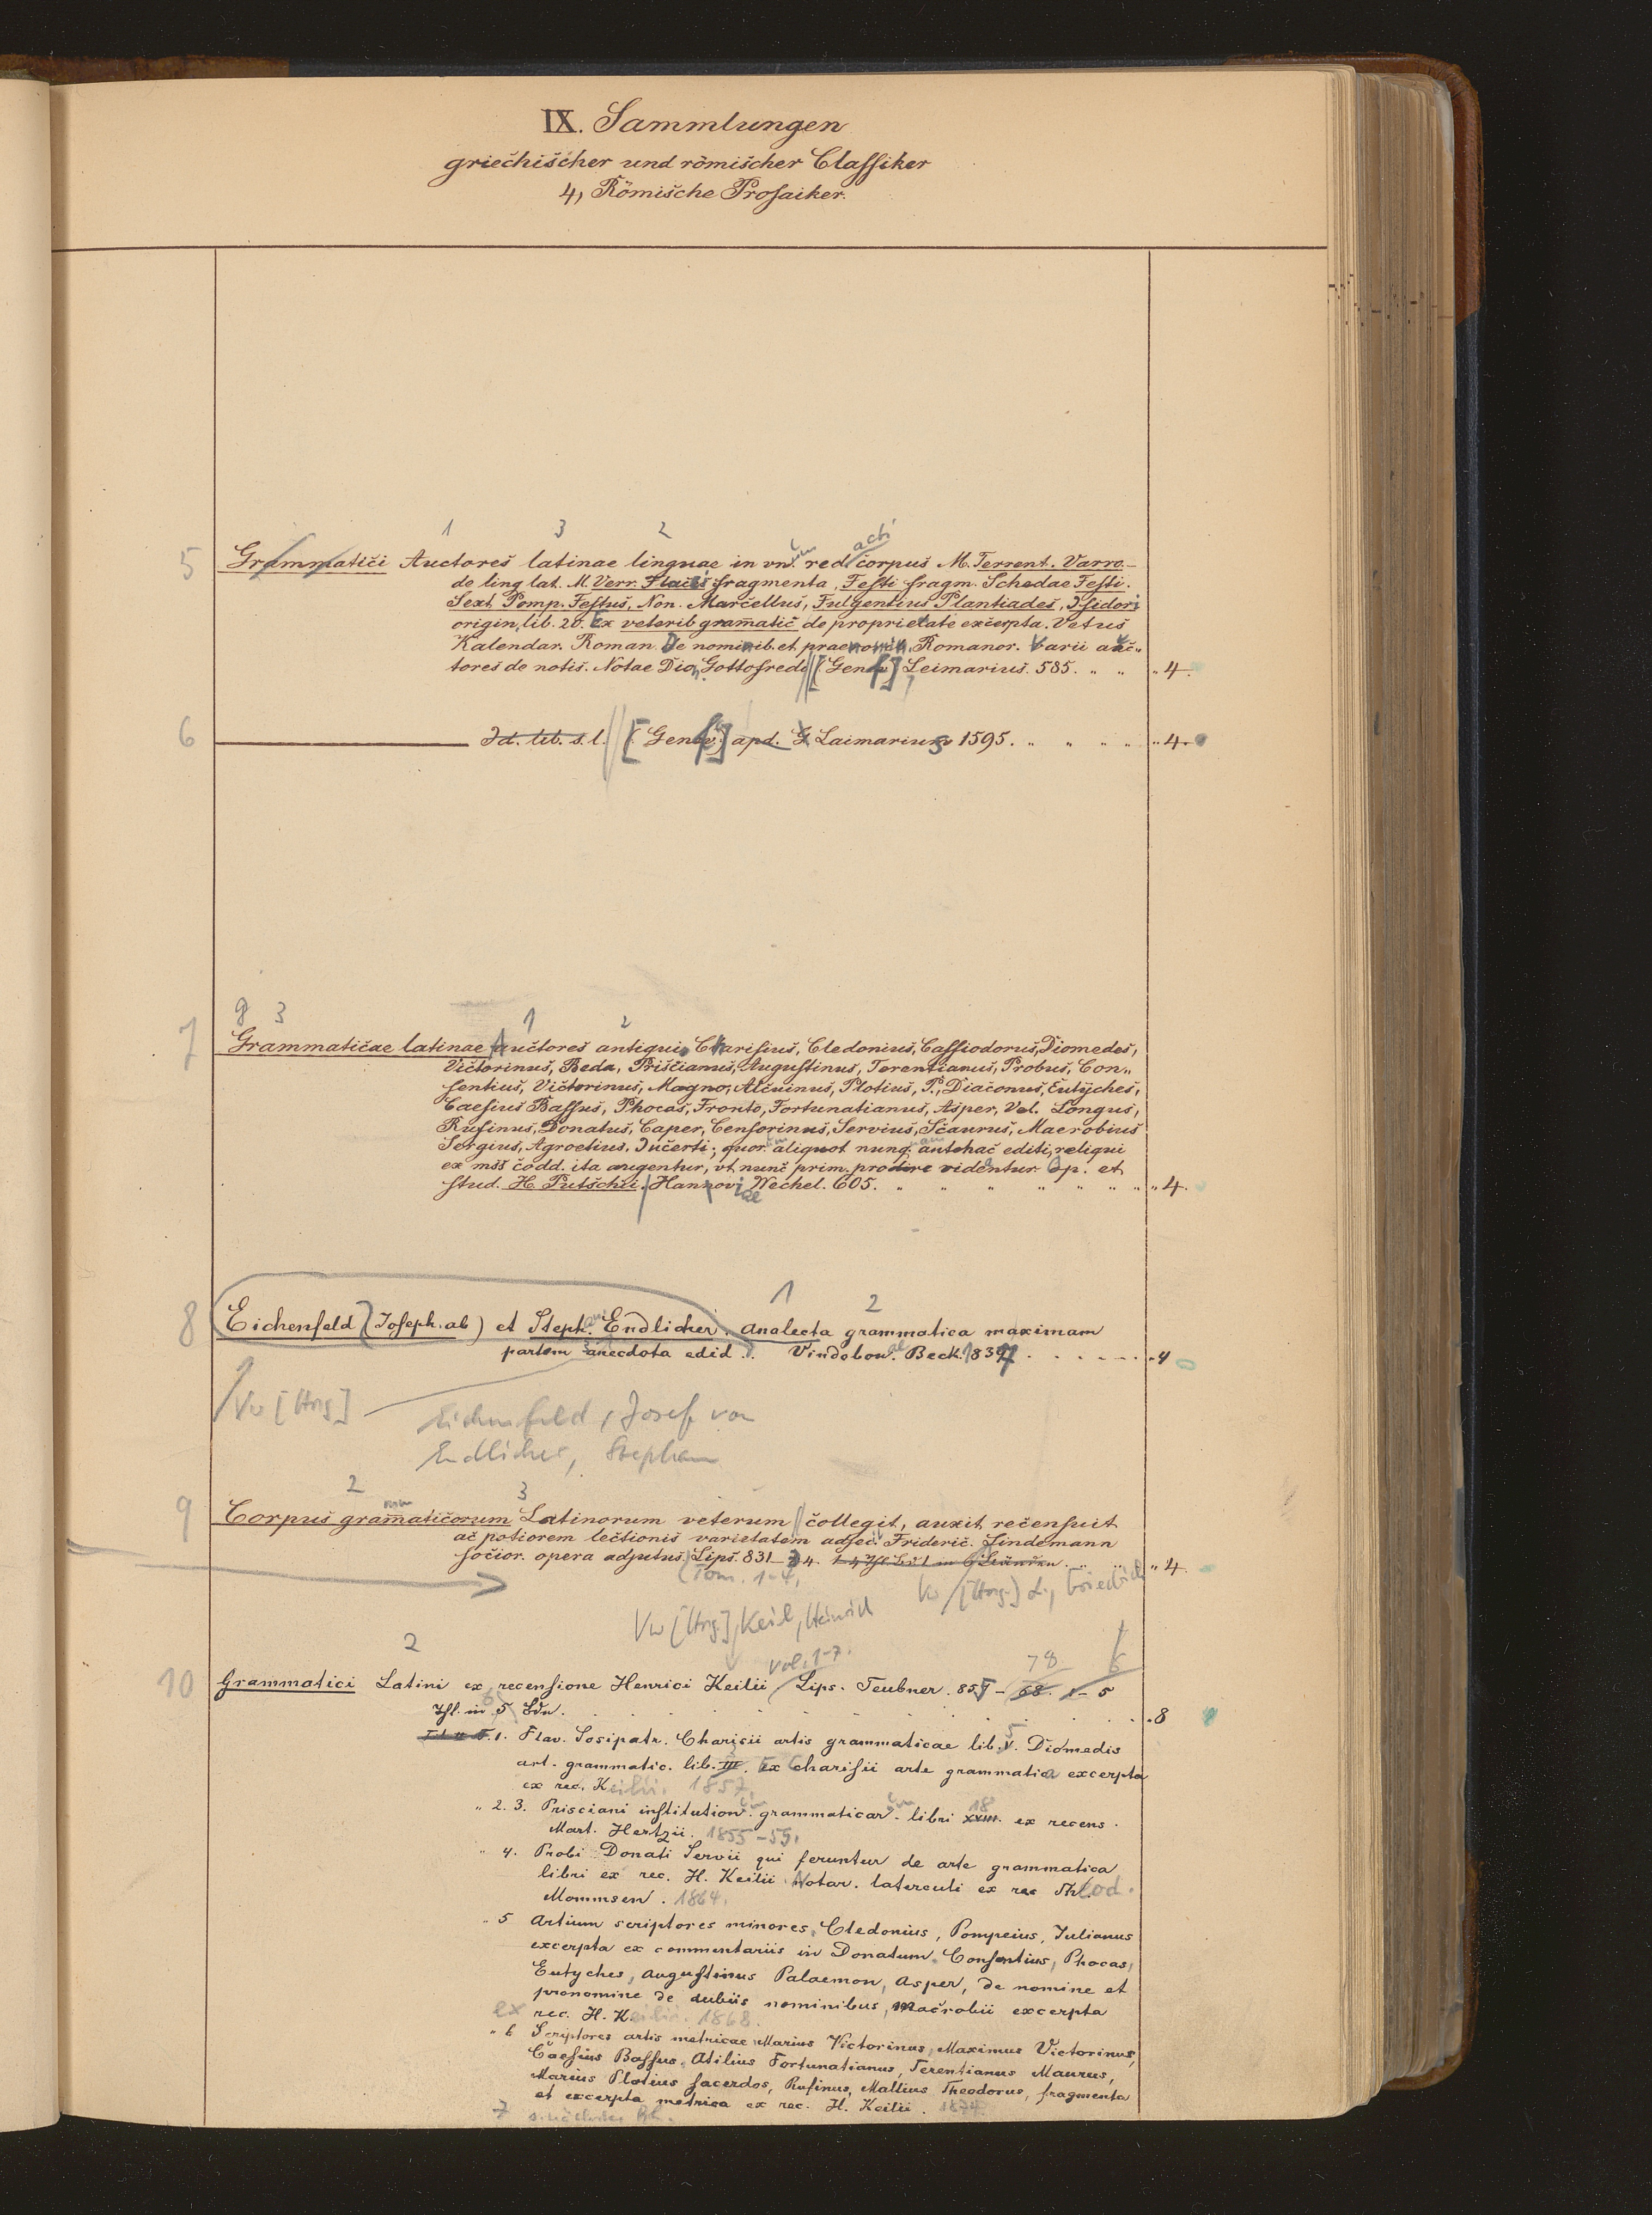 IX. Sammlungen
griechischer und römischer Classiker
4, Römische Prosaiker.
1 3 2 acti
5 Grammatici Auctores latinae linguae in vn. red corpus M. Terrent. Varro
de ling lat. M. Verr. Flacci fragmenta, Festi fragm. Schedae Festi.
Sext. Pomp. Festus, Non. Marcellus, Fulgentius Plantiades, Isidori
origin, lib. 20. Ex veterib gram̄atic de proprietate excerpta. Vetus
Kalendar. Roman. De nominib. et praenomin, Romanor. Varii auc„
tores de notis. Notae Dion, Gottofredi [Genf] Leimarius. 585. „ „ „ 4.
6 Id. lib. s. l. [Genf] apd. Laimarius 1595. „ „ „ „ „ 4.
g 3 1 2
7 Grammaticae latinae Auctores antiqui, Charisius, Cledonius, Cassiodorus, Diomedes,
Victorinus, Beda, Priscianus, Augustinus, Terentianus, Probus, Con„
sentius, Victorinus, Magno, Alcuinus, Plotius, P. Diaconus, Eutyches,
Caesius Bassus, Phocas, Fronto, Fortunatianus, Asper, Vel. Longus,
Rufinus, Donatus, Caper, Censorinus, Servius, Scaurus, Macrobius
Sergius, Agroetius. Incerti; quor. aliquot nunq. antehac editi, reliqui
ex mss codd. ita augentur, vt nunc prim. prodire videntur Op. et
stud. H. Putschii. Hannoviae Wechel. 605. „ „ „ „ „ „ „ 4.
1 2
8 Eichenfeld (Joseph. ab) et Steph. Endlicher. Analecta grammatica maximam
partem anecdota edid. Vindobon. Beck. 1837 . . . . . . „ 4
Vw [Hrsg]
Eichenfeld, Josef von
Endlicher, Stephan
2 3
9 Corpus gram̄aticorum Latinorum veterum collegit, auxit, recensuit
ac potiorem lectionis varietatem adjec. Frideric. Lindemann
socior. opera adjutus. Lips. 831–34. „ 4.
(Tom. 1–4, Vw [Hrsg.] L., Friedrich
Vw [Hrsg.] Keil, Heinrich
2 vol. 1–7. 78 6
10 Grammatici Latini ex recensione Henrici Keilii Lips. Teubner. 855 – 68. 1–5
Thl. in 5 Bdn. . . . . . . . . . „ 8
1. Flav. Sosipatr. Charisii artis grammaticae lib. V. Diomedis
art. grammatic. lib. III. Ex Charisii arte grammatica excerpta
ex rec. Keilii. 1857
„ 2. 3. Prisciani institution. grammaticar. libri XVIII. 18 ex recens.
Mart. Hertzii. 1855–59.
„ 4. Probi Donati Servii qui feruntur de arte grammatica
libri ex rec. H. Keilii Notar. laterculi ex rec Theod.
Mommsen. 1864.
„ 5 Artium scriptores minores, Cledonius, Pompeius, Julianus
excerpta ex commentariis in Donatum, Consentius, Phocas,
Eutyches, Augustinus Palaemon, Asper, de nomine et
pronomine de dubiis nominibus, Macrobii excerpta
ex rec. H. Keilii. 1868.
„ 6 Scriptores artis metricae Marius Victorinus, Maximus Victorinus,
Caesius Bassus, Atilius Fortunatianus, Terentianus Maurus,
Marius Plotius sacerdos, Rufinus, Mallius Theodorus, fragmenta
et excerpta metrica ex rec. H. Keilii. 1874.
7 s. nächstes Bl.